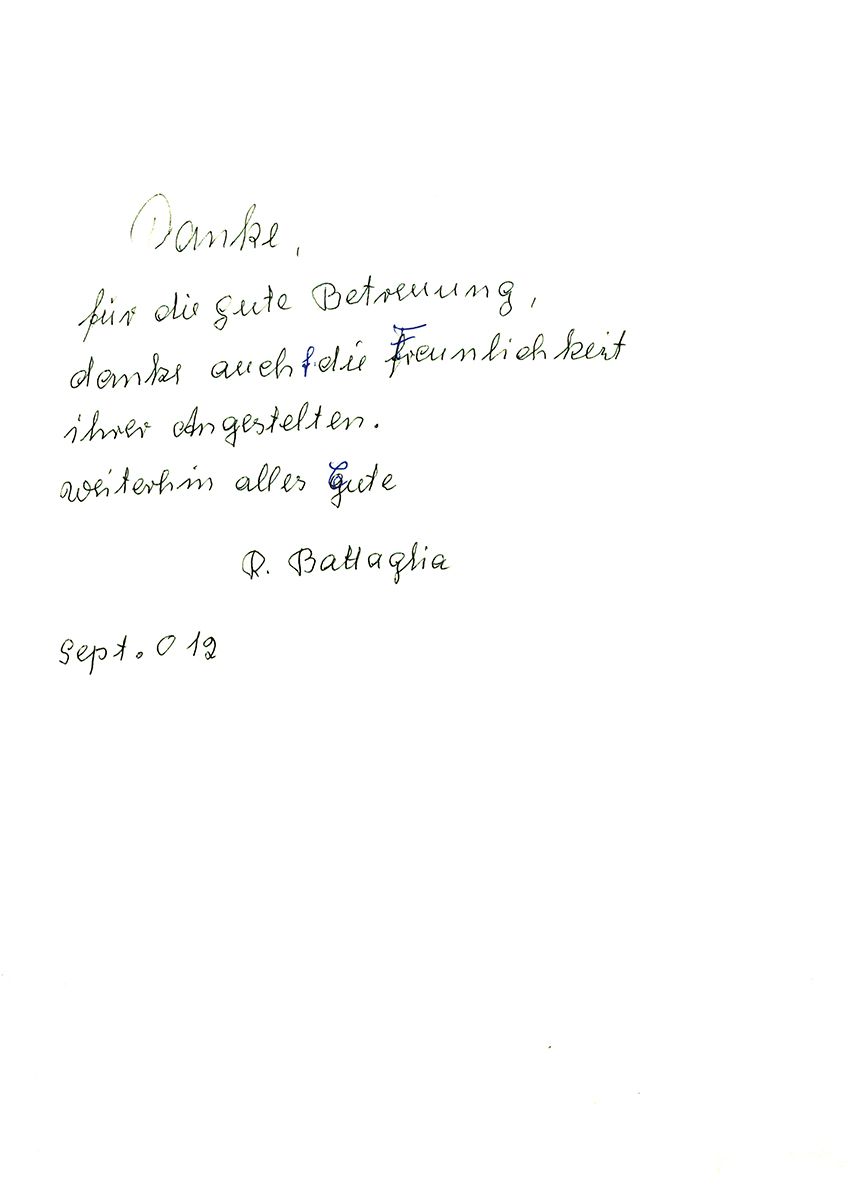 Danke,
für die gute Betreuung,
danke auch f. die Freunlichkeit
ihrer Angestelten.
weiterhin alles Gute
R. Battaglia
Sept. 012